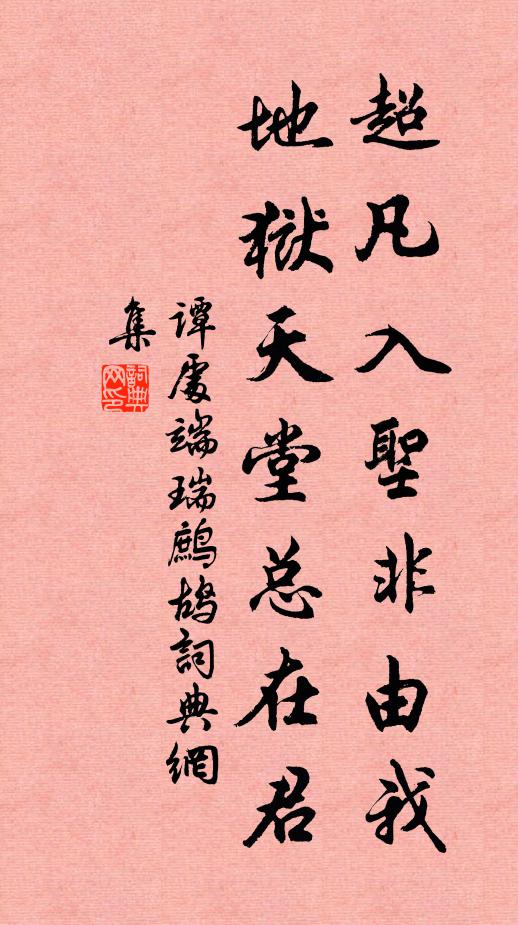 超凡入聖非由我
地獄天堂总在君
譚處端瑞鷓鴣詞典網
集
詞典
网印